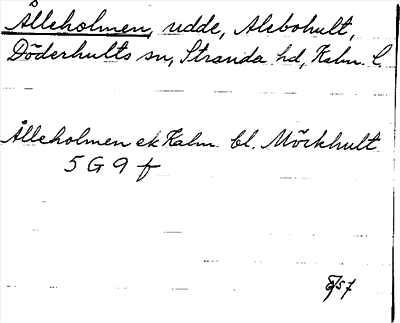 Ålleholmen, udde, Alebohult,
Döderhults sn, Stranda hd, Kalm. l.
Ålleholmen ek Kalm. bl. Möckhult
5 G 9 f
57